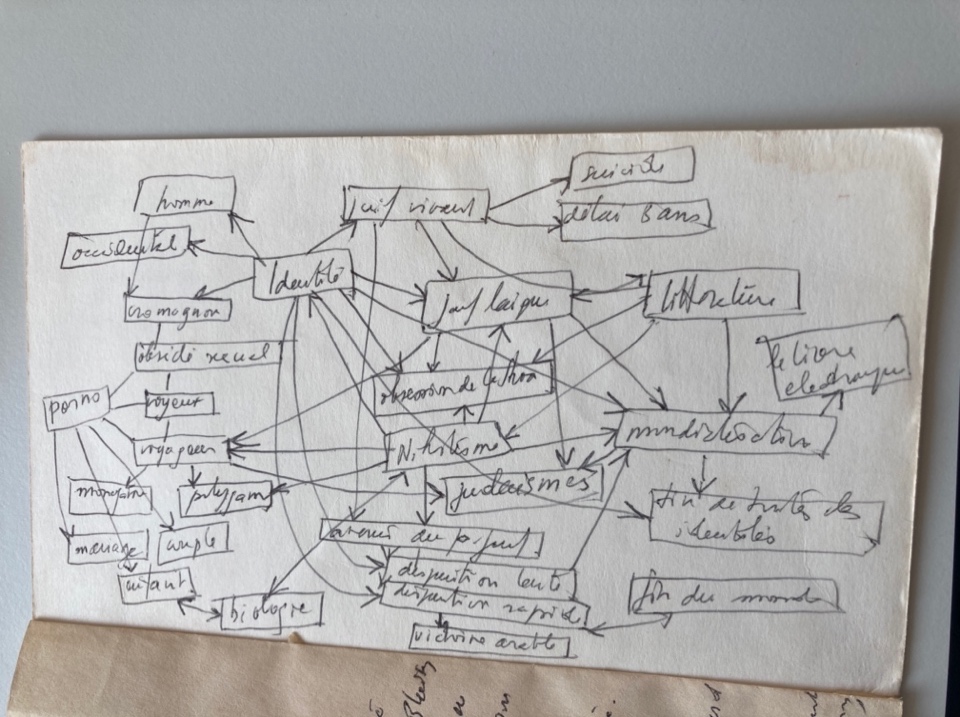 suicide
homme
juif vivant
délai 3 ans
occidental
Identité
juif laïque
littérature
cromagnon
le livre
electronique
obsédé sexuel
obsession de la shoa
porno
voyeur
mondialisation
voyageur
Nihilisme
monogame
polygame
judaïsmes
fin de toutes les
identités
mariage
couple
avenir du p. juif
enfant
disparition lente
disparition rapide
fin du monde
biologie
victoire arabe